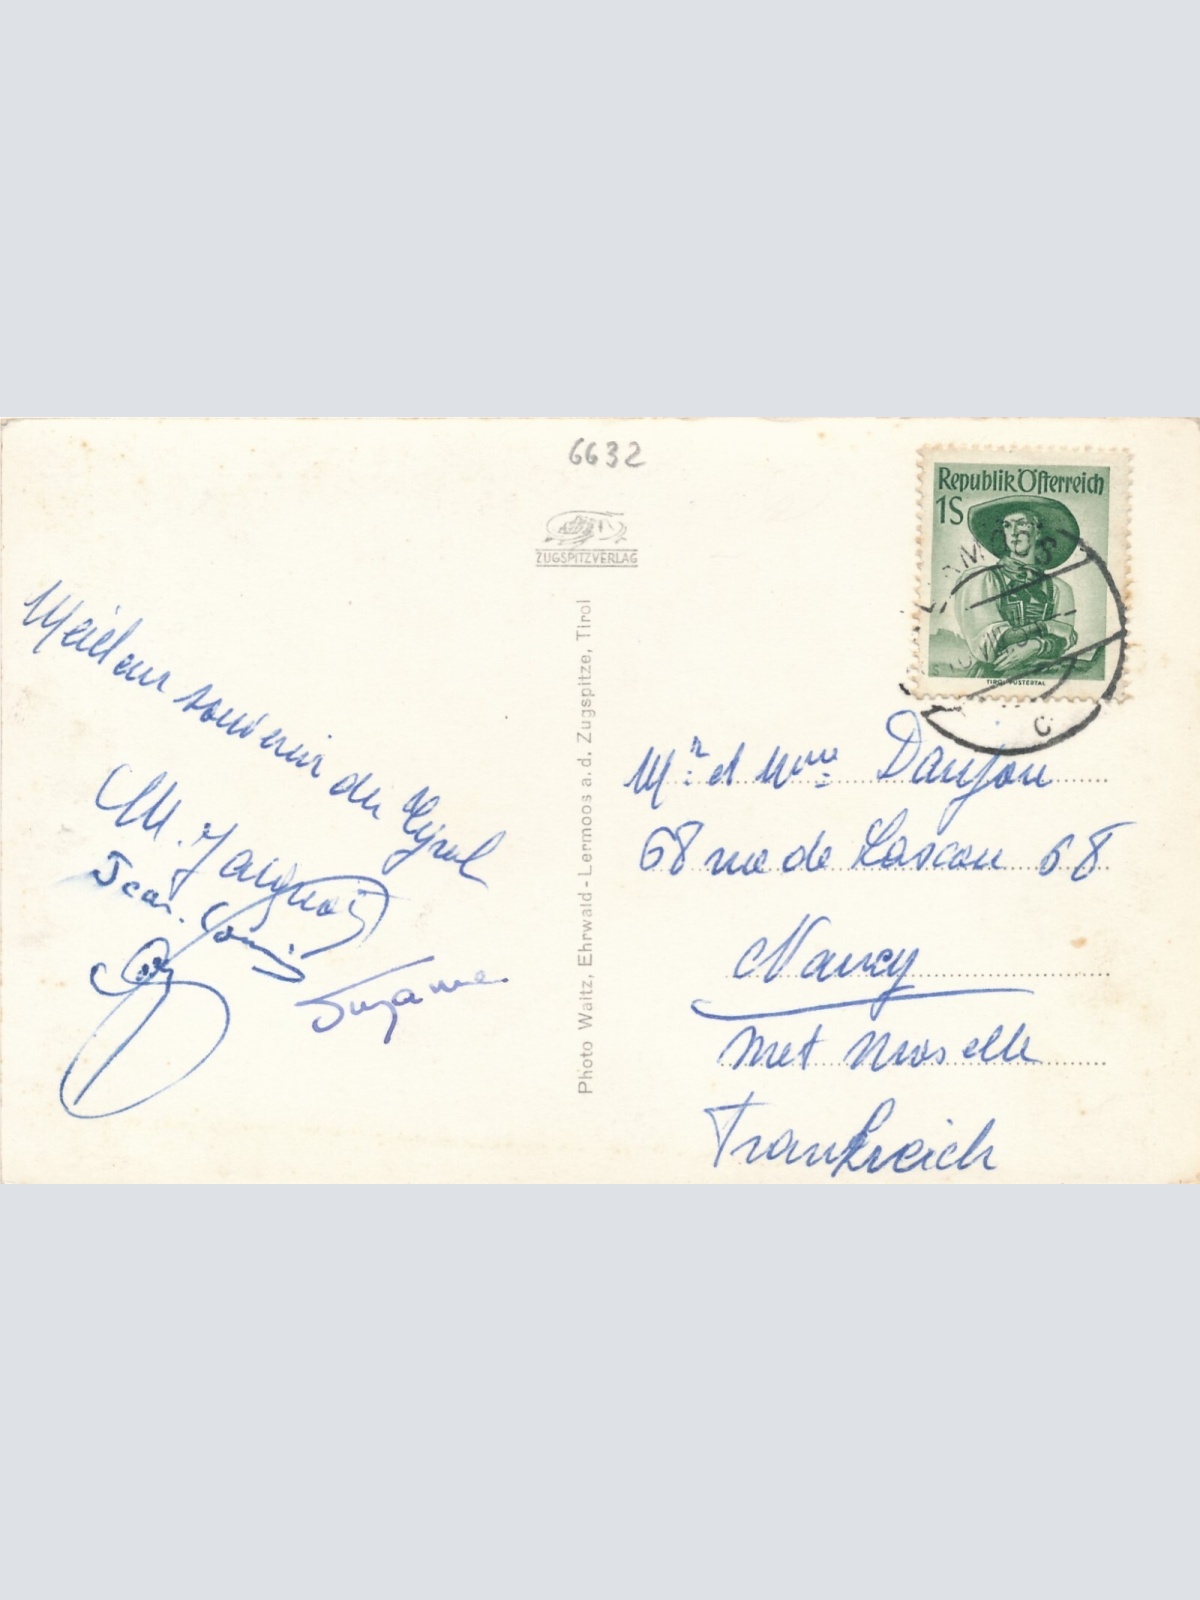 6632
ZUGSPITZVERLAG
Republik Österreich
1S
TIROL PUSTERTAL
C
Meilleur souvenir du Tyrol
M. Jacquot
Jean. Louis
Suzanne.
Photo Waitz, Ehrwald-Lermoos a.d. Zugspitze, Tirol
Mr et Mme Danjou
68 rue de 68
Nancy
Met Moselle
Frankreich